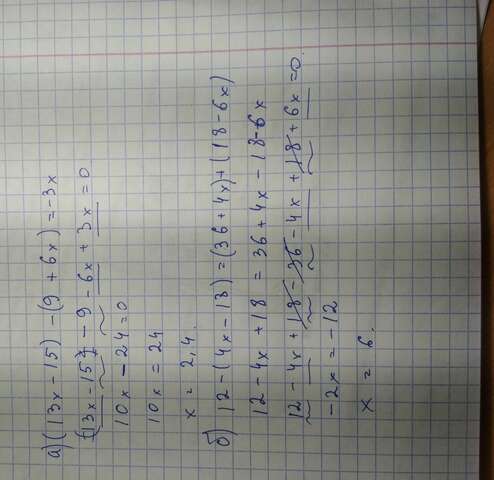 а) (13x - 15) - (9 + 6x) = -3x
13x - 15 - 9 - 6x + 3x = 0
10x - 24 = 0
10x = 24
x = 2,4.
б) 12 - (4x - 18) = (36 + 4x) + (18 - 6x)
12 - 4x + 18 = 36 + 4x - 18 - 6x
12 - 4x + 18 - 36 - 4x + 18 + 6x = 0.
-2x = -12
x = 6.